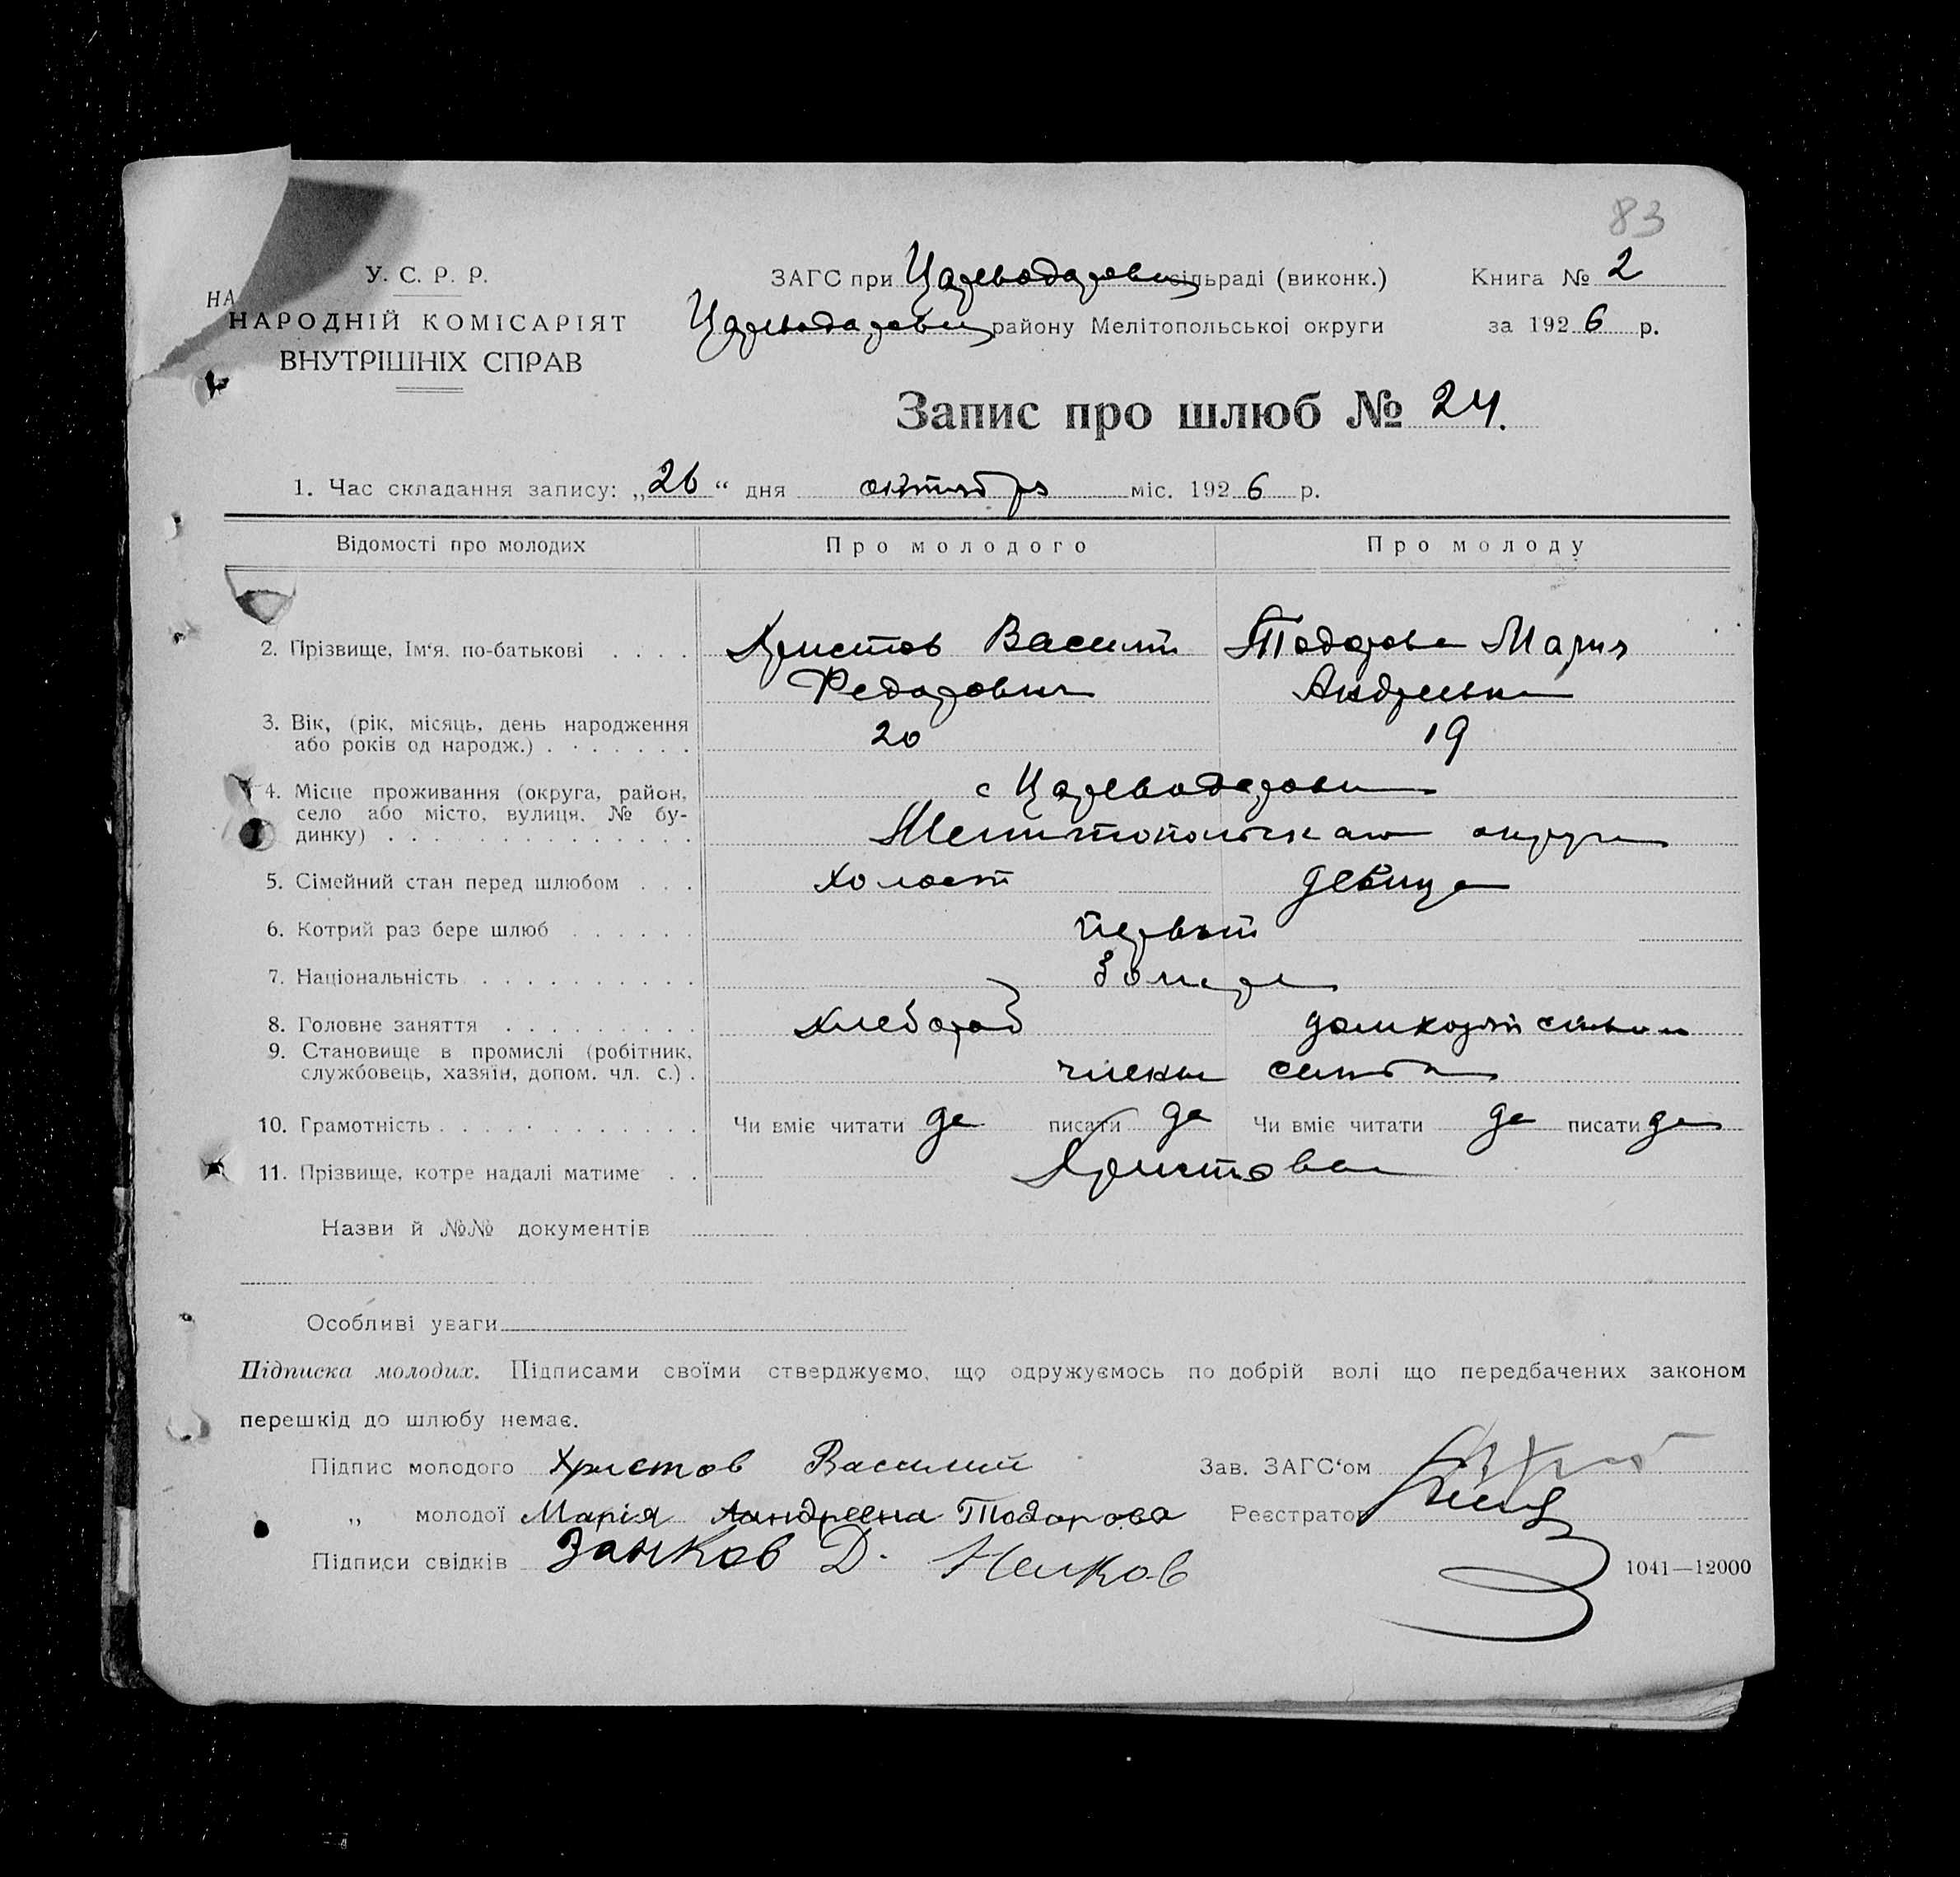 83
У. С. Р. Р.
НА
НАРОДНІЙ КОМІСАРІЯТ
ВНУТРІШНІХ СПРАВ
ЗАГС при Цареводаровск сільраді (виконк.)
Цареводаровск району Мелітопольської округи
Книга № 2
за 1926 р.
Запис про шлюб № 24.
1. Час складання запису: „26“ дня октября міс. 1926 р.
Відомості про молодих Про молодого Про молоду
2. Прізвище, Ім‘я, по-батькові Христов Василий Тодорова Мария
Федорович Андреевна
3. Вік, (рік, місяць, день народження
або років од народж.) 20 19
4. Місце проживання (округа, район, с Цареводаровка
село або місто, вулиця, № бу-
динку) Мелитопольская округа
5. Сімейний стан перед шлюбом холост девица
6. Котрий раз бере шлюб первый
7. Національність
8. Головне заняття хлебороб домохозяйство
9. Становище в промислі (робітник,
службовець, хазяїн, допом. чл. с.) члены семьи
10. Грамотність Чи вміє читати да писати да Чи вміє читати да писати да
11. Прізвище, котре надалі матиме Христова
Назви й №№ документів
Особливі уваги
Підписка молодих. Підписами своїми стверджуємо, що одружуємось по добрій волі що передбачених законом
перешкід до шлюбу немає.
Підпис молодого Христов Василий Зав. ЗАГС‘ом
„ молодої Марія Аандреена Тодорова Реєстратор
Підписи свідків Занков Д. Ненков
1041—12000